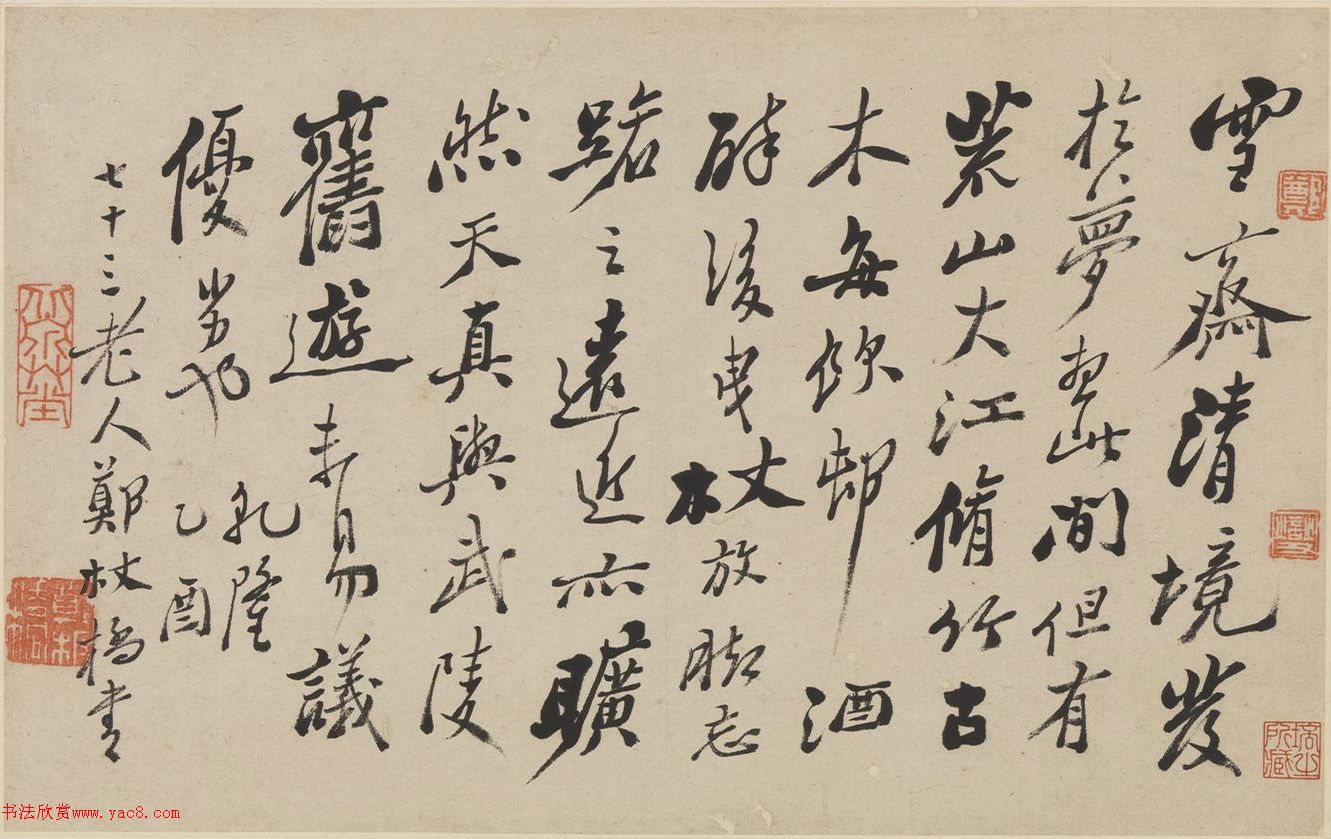 雪齋清境發
於夢想此間但有
荒山大江脩竹古
木每飲邨酒
醉後曳杖放腳忘
路之遠近亦曠
然天真與武陵
舊遊未易議
優劣也
乾隆
乙酉
七十三老人鄭板橋書
书法欣赏www.yac8.com